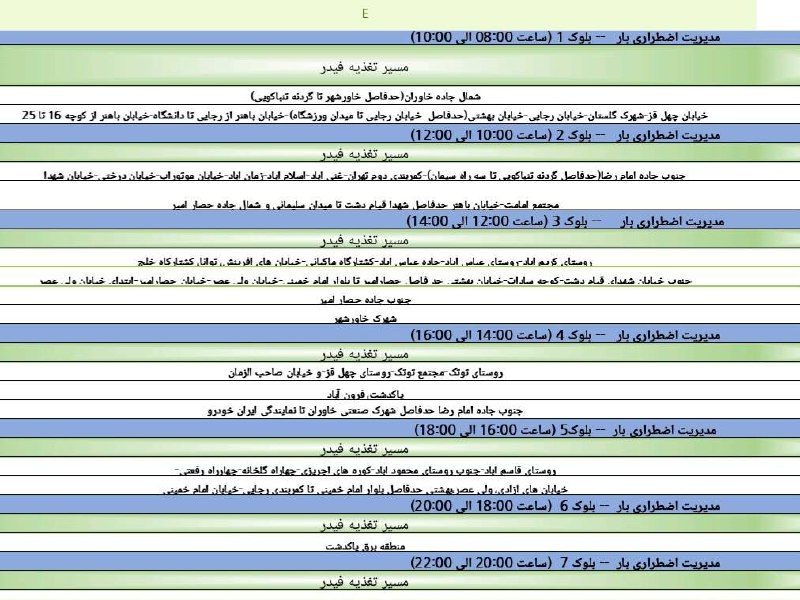 E
مدیریت اضطراری بار -- بلوک 1 (ساعت 08:00 الی 10:00)
مسیر تغذیه فیدر
شمال جاده خاوران(حدفاصل خاورشهر تا گردنه تنباکویی)
خیابان چهل قز-شهرک گلستان-خیابان رجایی-خیابان بهشتی(حدفاصل خیابان رجایی تا میدان ورزشگاه)-خیابان باهنر از رجایی تا دانشگاه-خیابان باهنر از کوچه 16 تا 25
مدیریت اضطراری بار -- بلوک 2 (ساعت 10:00 الی 12:00)
مسیر تغذیه فیدر
جنوب جاده امام رضا(حدفاصل گردنه تنباکویی تا سه راه سیمان)-کمربندی دوم تهران-غنی اباد-اسلام اباد-زمان اباد-خیابان موتوراب-خیابان درختی-خیابان شهدا
مجتمع امامت-خیابان باهنر حدفاصل شهدا قیام دشت تا میدان سلیمانی و شمال جاده حصار امیر
مدیریت اضطراری بار -- بلوک 3 (ساعت 12:00 الی 14:00)
مسیر تغذیه فیدر
روستای کریم اباد-روستای عباس اباد-جاده عباس اباد-کشتارگاه ماکیانی-خیابان های افرینش توانا، کشتارگاه خلج
جنوب خیابان شهدای قیام دشت-کوچه سادات-خیابان بهشتی حد فاصل حصارامیر تا بلوار امام خمینی-خیابان ولی عصر-خیابان حصارامیر-ابتدای خیابان ولی عصر
جنوب جاده حصار امیر
شهرک خاورشهر
مدیریت اضطراری بار -- بلوک 4 (ساعت 14:00 الی 16:00)
مسیر تغذیه فیدر
روستای توتک-مجتمع توتک-روستای چهل قز-و خیابان صاحب الزمان
پاکدشت، فرون آباد
جنوب جاده امام رضا حدفاصل شهرک صنعتی خاوران تا نمایندگی ایران خودرو
مدیریت اضطراری بار -- بلوک5 (ساعت 16:00 الی 18:00)
مسیر تغذیه فیدر
روستای قاسم اباد-جنوب روستای محمود اباد-کوره های اجرپزی-چهاراه گلخانه-چهارراه رفعتی-
خیابان های ازادی، ولی عصر،بهشتی حدفاصل بلوار امام خمینی تا کمربندی رجایی-خیابان امام خمینی
مدیریت اضطراری بار -- بلوک 6 (ساعت 18:00 الی 20:00)
مسیر تغذیه فیدر
منطقه برق پاکدشت
مدیریت اضطراری بار -- بلوک 7 (ساعت 20:00 الی 22:00)
مسیر تغذیه فیدر